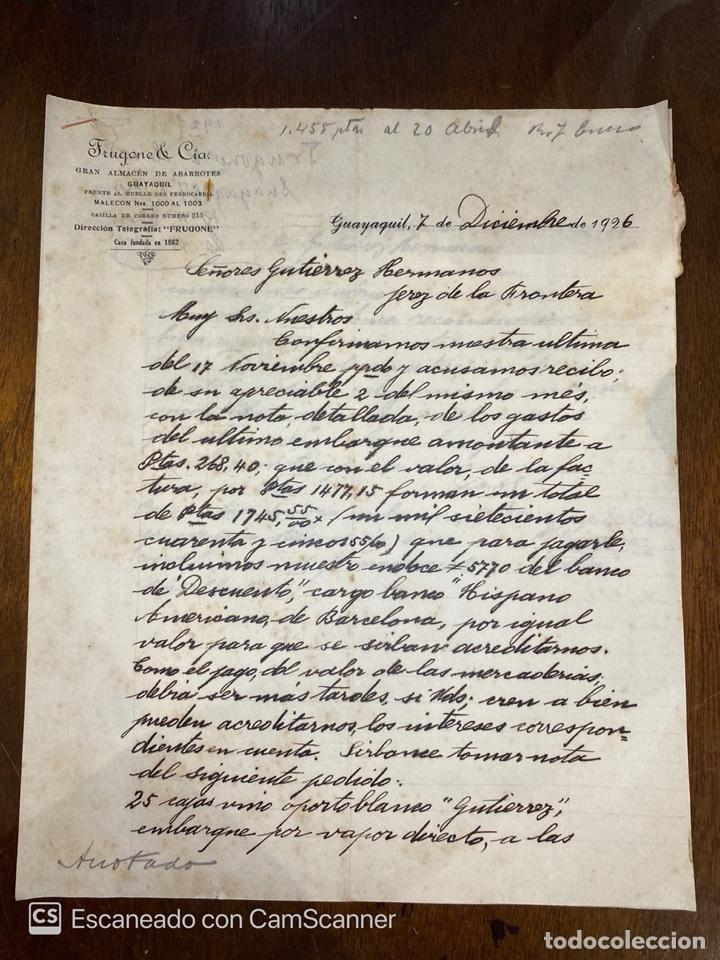 1.455 ptas al 20 Abril
Frugone & Cía.
GRAN ALMACÉN DE ABARROTES
GUAYAQUIL
FRENTE AL MUELLE DEL FERROCARRIL
MALECON Nos. 1000 AL 1003
CASILLA DE CORREO NUMERO 215
Dirección Telegráfia: "FRUGONE"
Casa fundada en 1882
Guayaquil, 7 de Diciembre de 1926
Señores Gutiérrez Hermanos
Jerez de la Frontera
Muy Srs. Nuestros
Confirmamos nuestra ultima
del 17 Noviembre ppdo y acusamos recibo;
de su apreciable 2 del mismo més,
con la nota, detallada, de los gastos
del ultimo embarque amontante a
Ptas. 268,40; que con el valor, de la fac
tura, por Ptas 1477,15 forman un total
de Ptas 1745,55/00 x (un mil sietecientos
cuarenta y cincos 55/00) que para pagarle,
incluimos nuestro endoce # 5770 del banco
de "Descuento", cargo banco "Hispano
Americano, de Barcelona, por igual
valor para que se sirban acreditarnos.
Como el pago, del valor de las mercaderias,
debia ser más tardes, si Vds; cren a bien
pueden acreditarnos, los intereses correspon=
dientes en cuenta. Sirbance tomar nota
del siguiente pedido:
25 cajas vino oporto blanco "Gutierrez",
embarque por vapor directo, a las
Anotado
CS Escaneado con CamScanner
todocoleccion